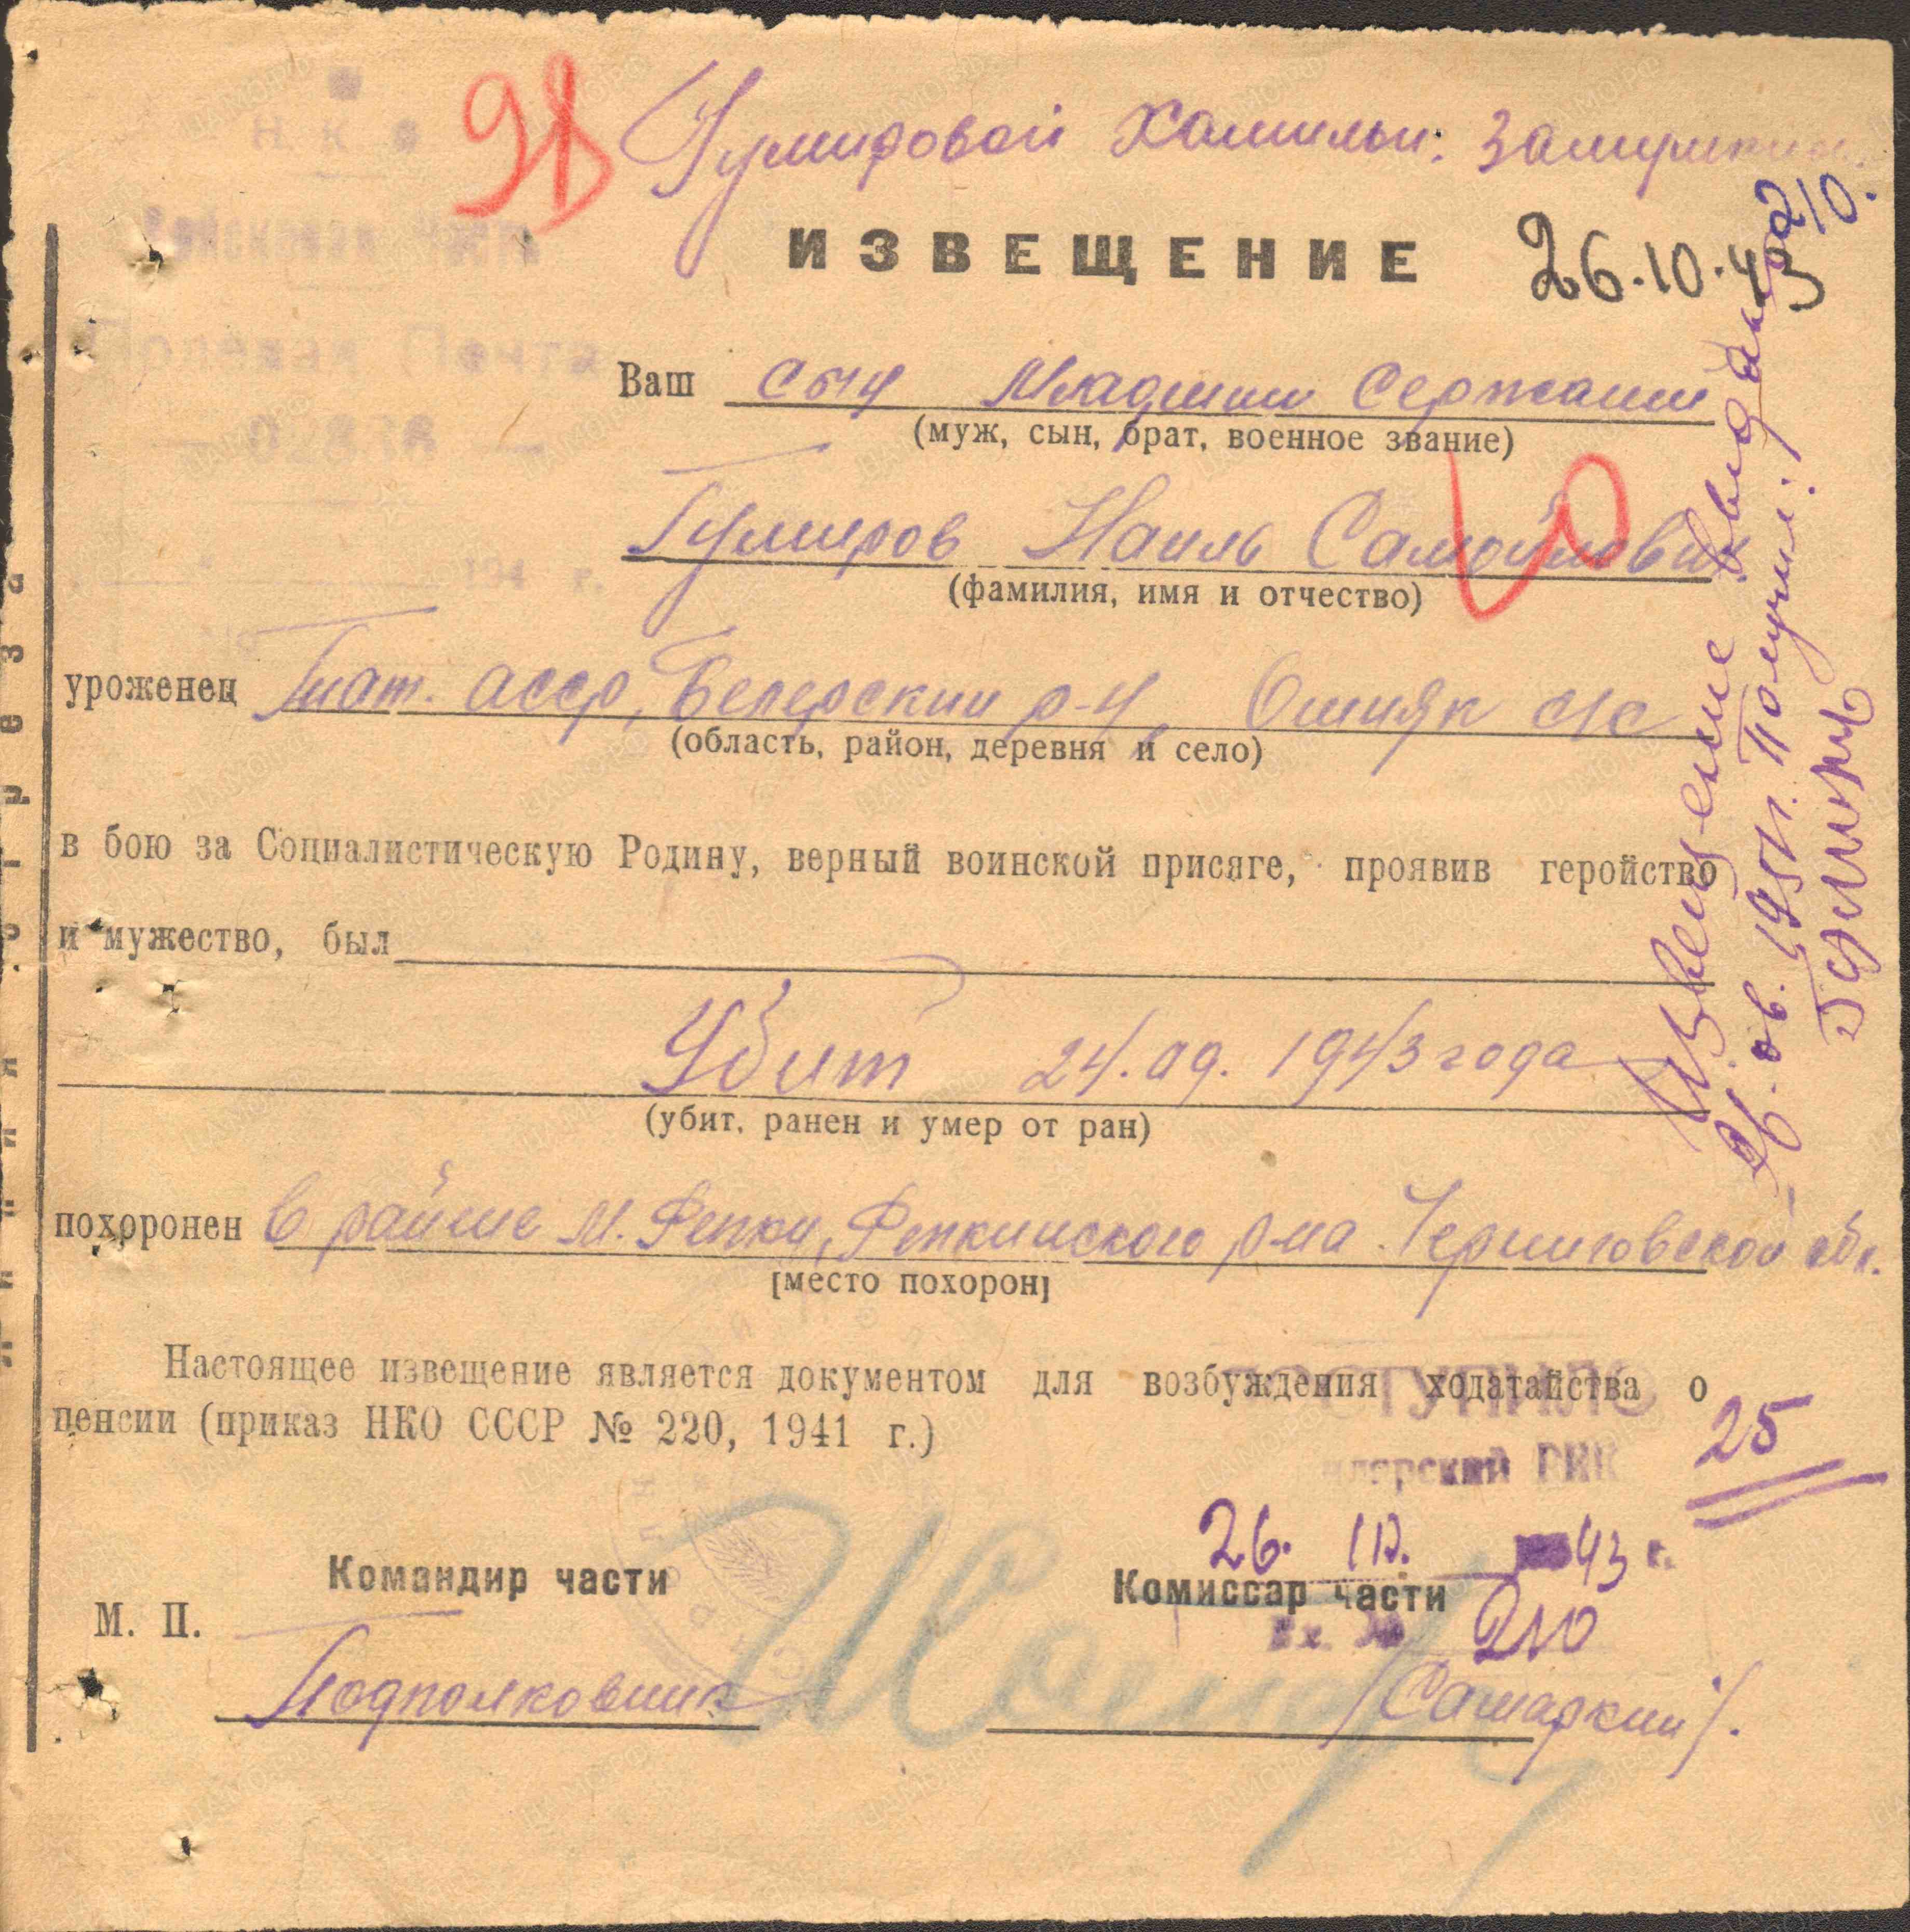 98 Гумировой Камильи.
ИЗВЕЩЕНИЕ 26.10.43 210.
Н К О
Войсковая Часть
Полевая Почта
194 г.
Ваш сын Младший Сержант
(муж, сын, брат, военное звание)
Гумиров Наиль Самойлович
(фамилия, имя и отчество)
уроженец Тат. АССР, р-н, Ошняк с/с
(область, район, деревня и село)
в бою за Социалистическую Родину, верный воинской присяге, проявив геройство
и мужество, был
Убит 24.09.1943 года
(убит, ранен и умер от ран)
похоронен в районе М. Репки, Репкинского р-на Черниговской обл.
[место похорон]
Настоящее извещение является документом для возбуждения ходатайства о
пенсии (приказ НКО СССР № 220, 1941 г.)
ПОСТУПИЛО
РИК
25
26. 10. 43 г.
Командир части
Комиссар части
М. П.
Вх. № 210
Подполковник
/Самаркин/.
Извещение
Получил.